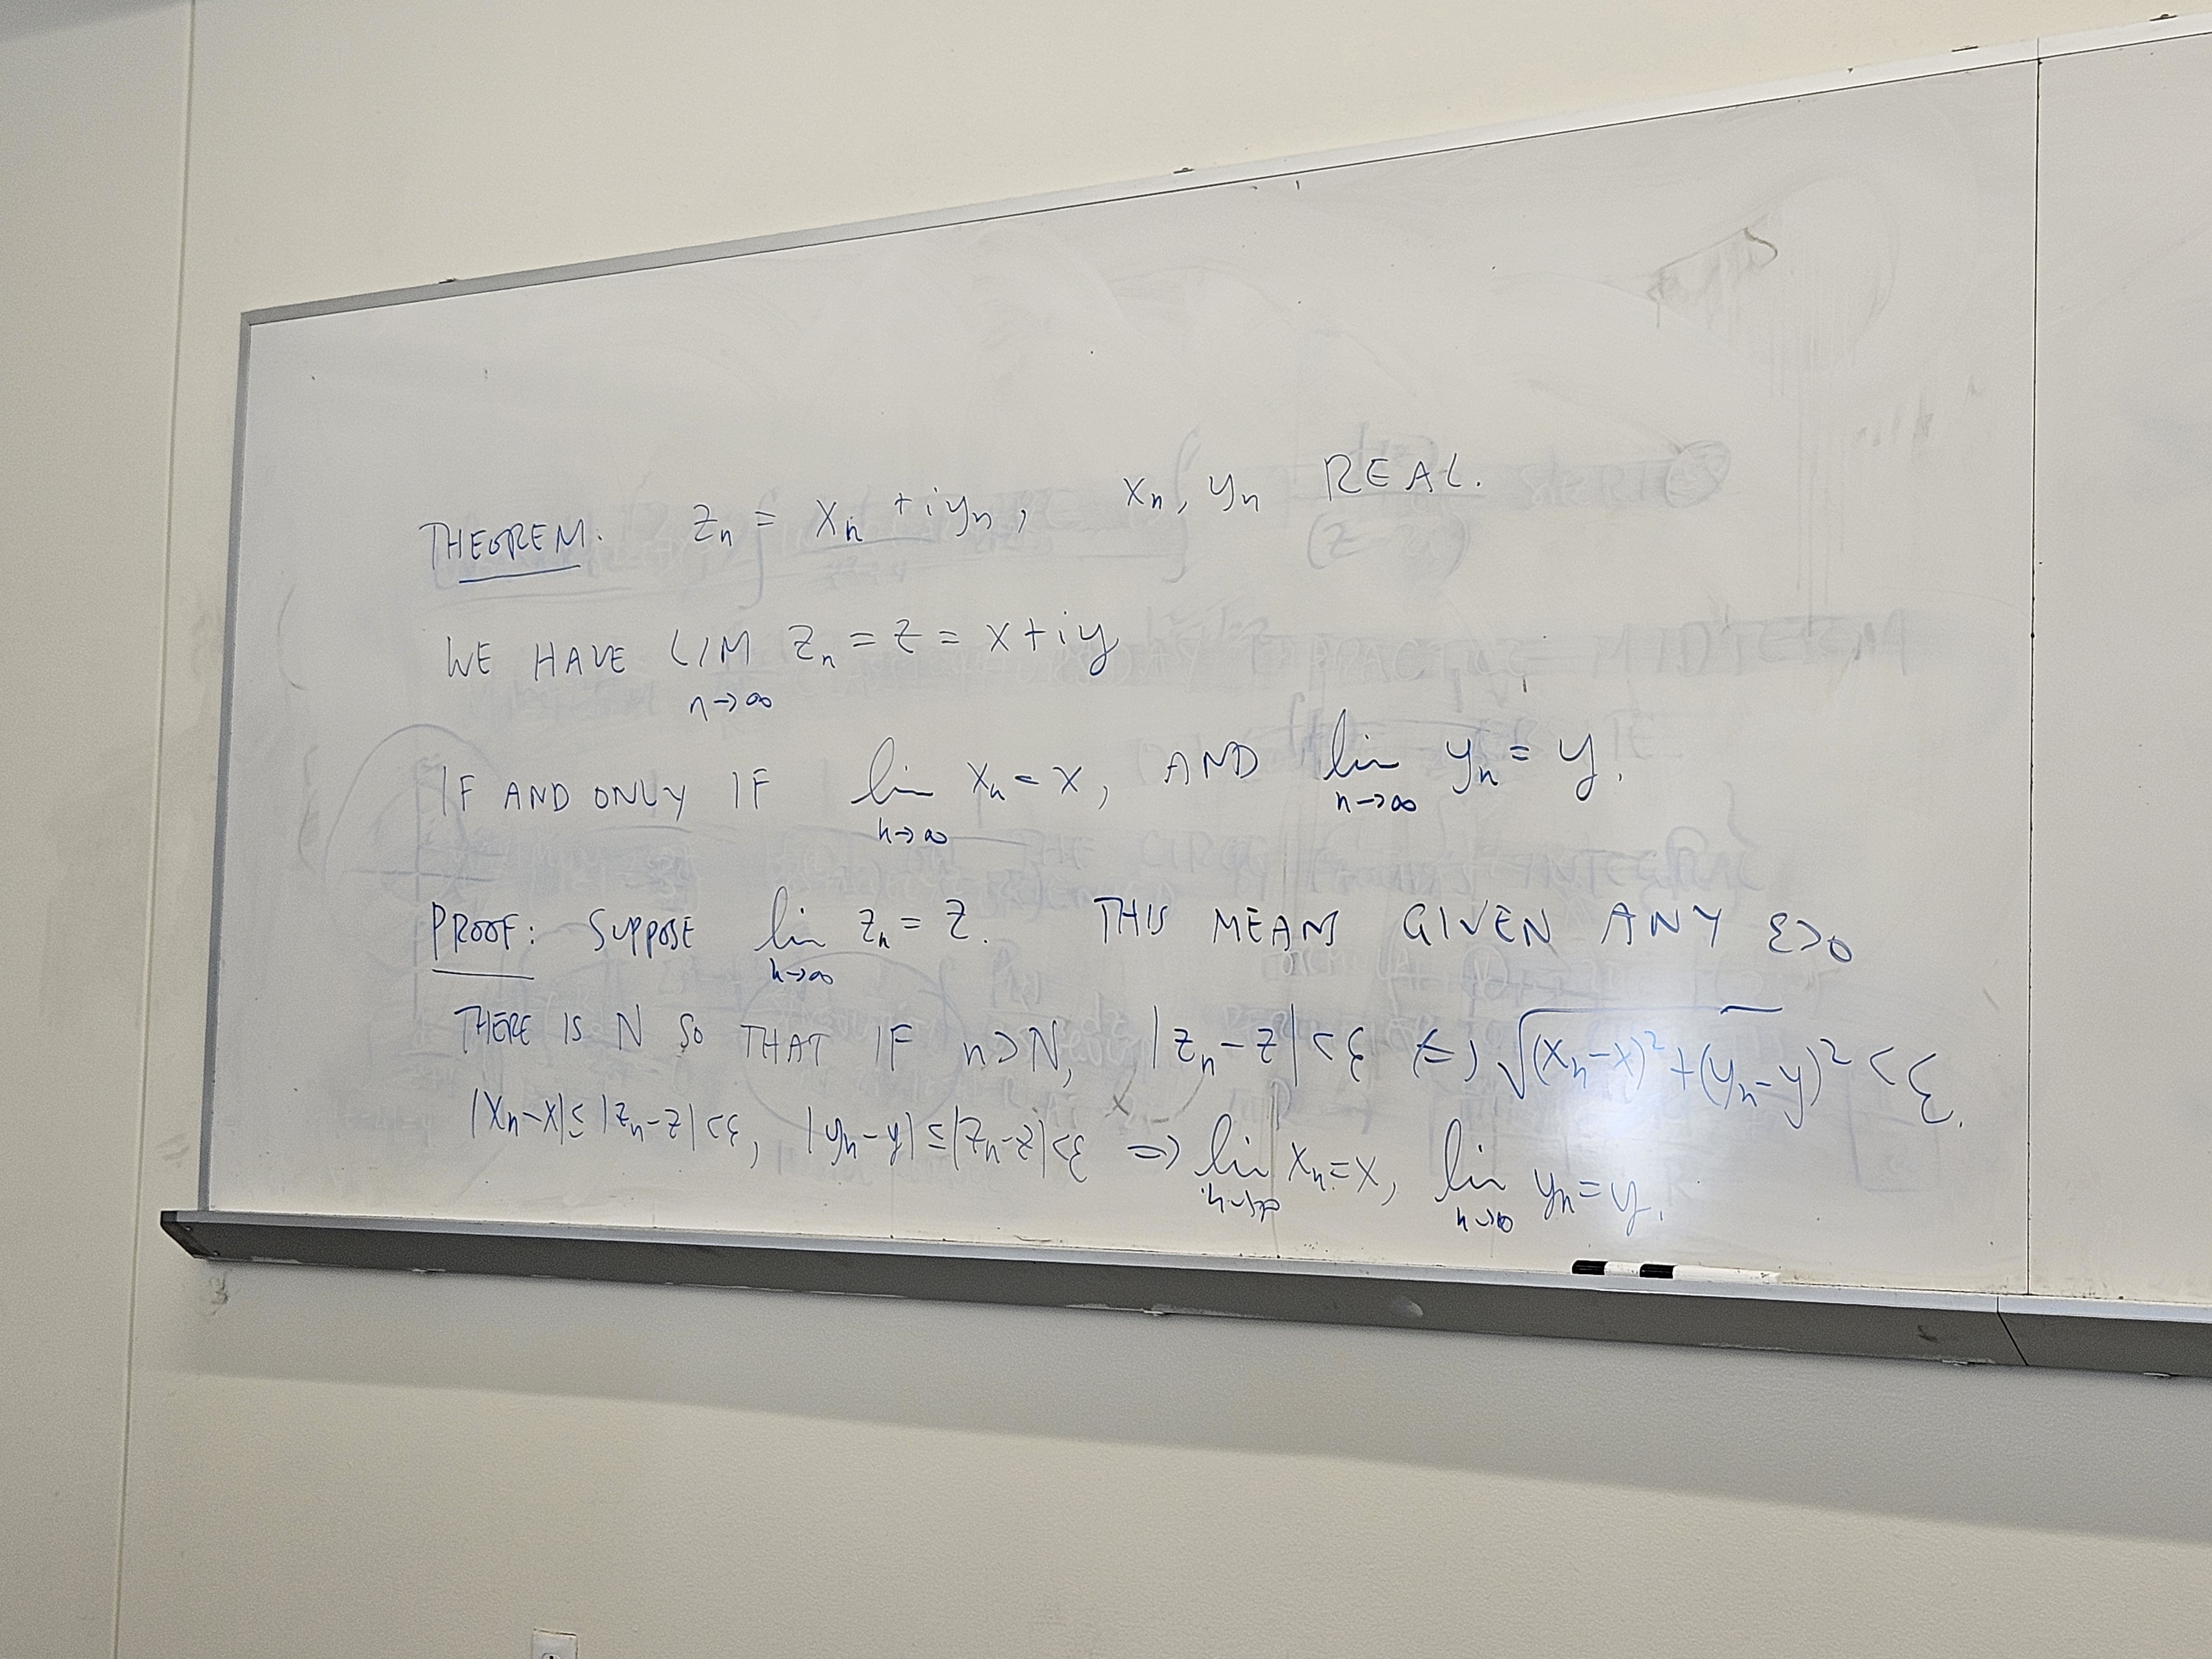 THEOREM. zₙ = xₙ + iyₙ, xₙ, yₙ REAL.
WE HAVE LIM zₙ = z = x+iy
n→∞
IF AND ONLY IF lim xₙ = x, AND lim yₙ = y.
n→∞ n→∞
PROOF: SUPPOSE lim zₙ = z. THIS MEANS GIVEN ANY ε>0
n→∞
THERE IS N SO THAT IF n>N, |zₙ-z|<ε (=) √(xₙ-x)²+(yₙ-y)² < ε.
|xₙ-x|≤|zₙ-z|<ε, |yₙ-y|≤|zₙ-z|<ε => lim xₙ=x, lim yₙ=y.
n→∞ n→∞